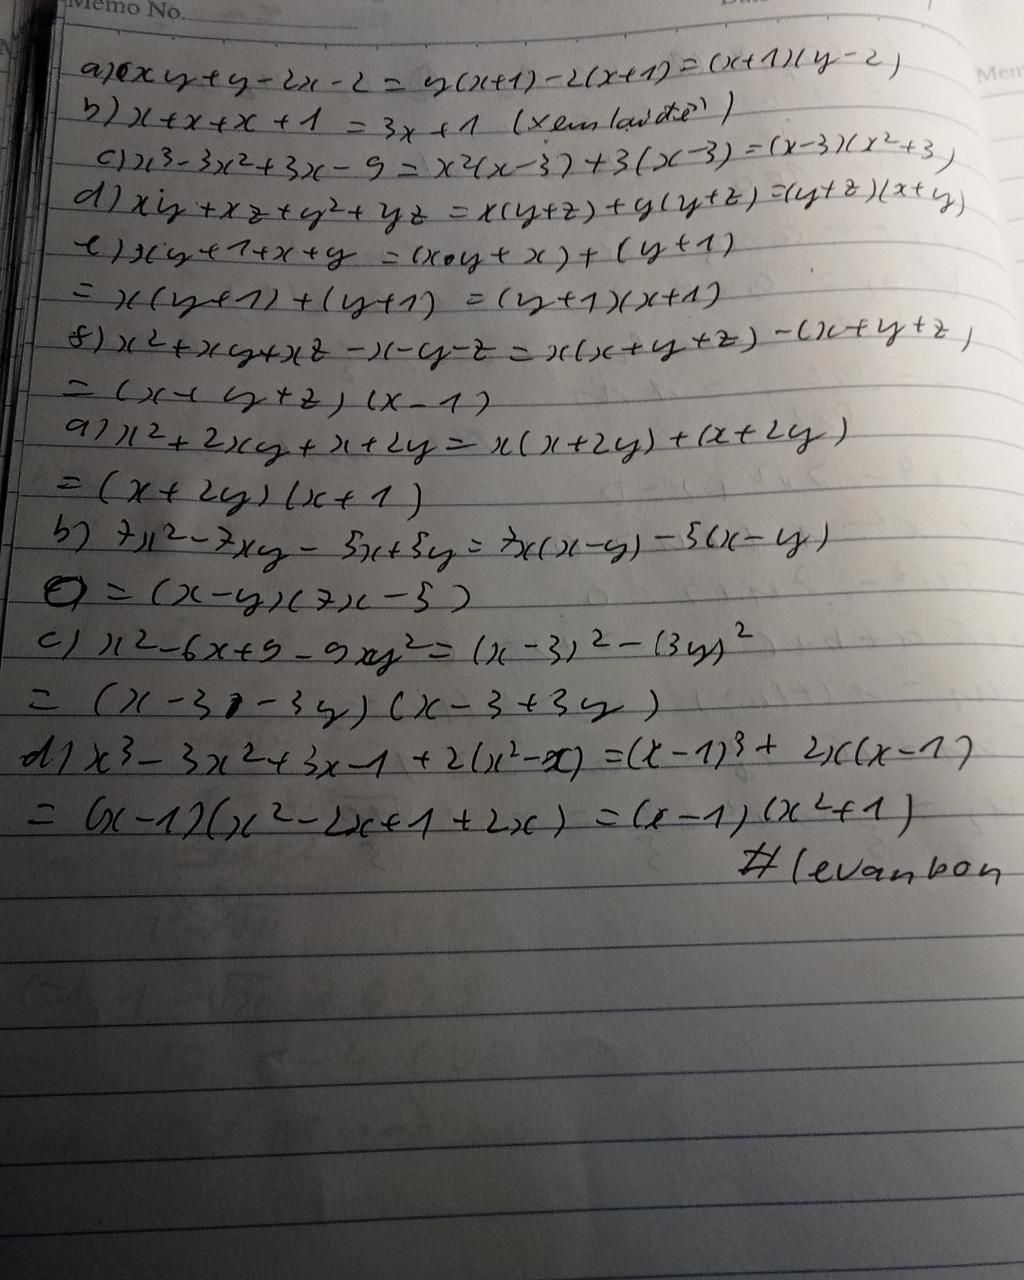 Memo No.
a) xy+y-2x-2 = y(x+1)-2(x+1)=(x+1)(y-2)
b) x+x+x+1 = 3x+1 (xem lại đề)
c) x³-3x²+3x-9 = x²(x-3)+3(x-3)=(x-3)(x²+3)
d) xy+xz+y²+yz = x(y+z)+y(y+z)=(y+z)(x+y)
e) xy+1+x+y = (x.y+x)+(y+1)
= x(y+1)+(y+1) = (y+1)(x+1)
f) x²+xy+xz-x-y-z = x(x+y+z)-(x+y+z)
= (x+y+z)(x-1)
a) x²+2xy+x+2y = x(x+2y)+(x+2y)
= (x+2y)(x+1)
b) 7x²-7xy-5x+5y = 7x(x-y)-5(x-y)
= (x-y)(7x-5)
c) x²-6x+9-9y² = (x-3)²-(3y)²
= (x-3-3y)(x-3+3y)
d) x³-3x²+3x-1+2(x²-x) =(x-1)³+2x(x-1)
= (x-1)(x²-2x+1+2x) = (x-1)(x²+1)
#levanbon